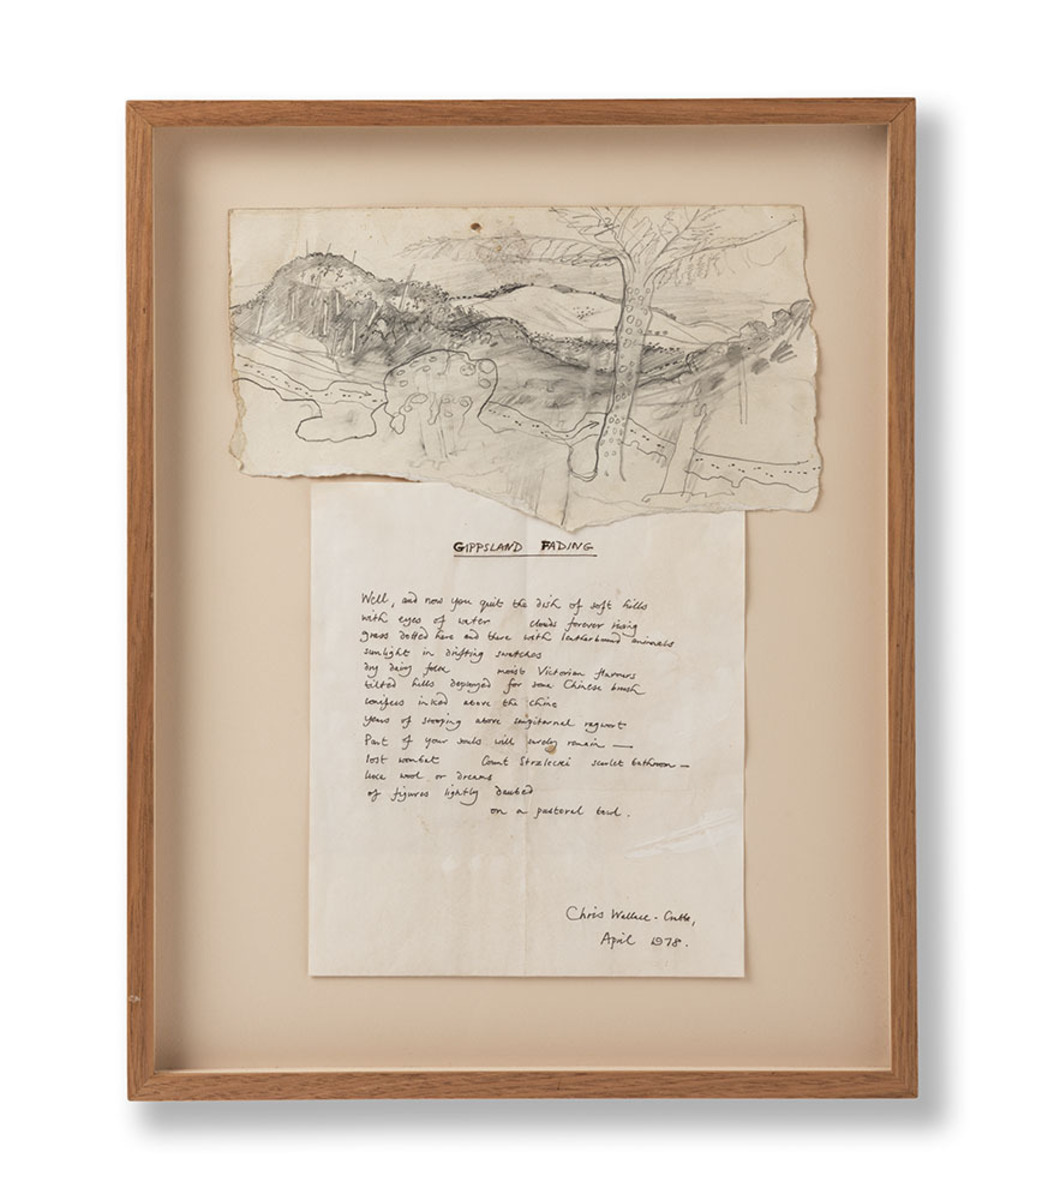 GIPPSLAND FADING
Well, and now you quit the dish of soft hills
with eyes of water clouds forever rising
grass dotted here and there with leatherbound animals
sunlight in drifting swatches
dry dairy folk moist Victorian flavours
tilted hills deployed for some Chinese brush
conifers inked above the chine
years of stooping above ragwort
Part of your souls will surely remain —
lost wombat Count Strzlecki scarlet bathroom —
like wool or dreams
of figures lightly daubed
on a pastoral bowl.
Chris Wallace-Crabbe,
April 1978.